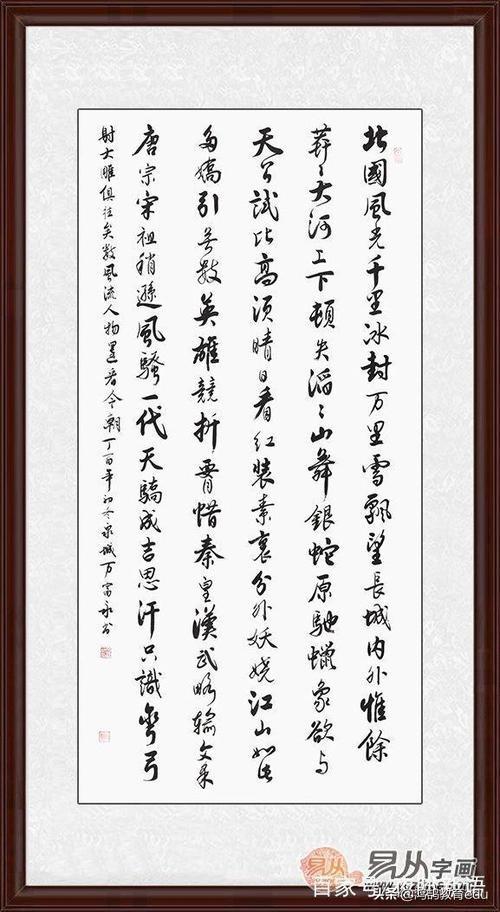 北國風光千里冰封万里雪飄望長城内外惟餘
莽〻大河上下頓失滔〻山舞銀蛇原馳蠟象欲与
天公試比高須晴日看红装素裹分外妖娆江山如此
多嬌引無数英雄競折腰惜秦皇漢武略輸文采
唐宗宋祖稍遜風騷一代天驕成吉思汗只識彎弓
射大雕俱往矣数風流人物還看今朝丁酉年初冬泉城万富永书
易从
易从字画
头条@鸿鹄教育edu